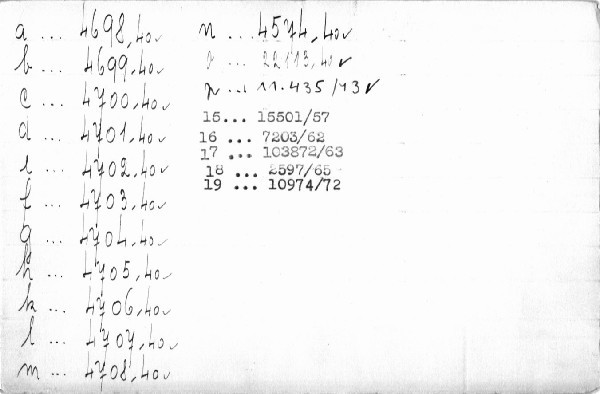 a ... 4698,40✓
b ... 4699,40✓
c ... 4700,40✓
d ... 4701,40✓
e ... 4702,40✓
f ... 4703,40✓
g ... 4704,40✓
h ... 4705,40✓
k ... 4706,40✓
l ... 4707,40✓
m ... 4708,40✓
n ... 4574,40✓
... 22113,40✓
p ... 11.435/43✓
15... 15501/57
16 ... 7203/62
17 ... 103872/63
18 ... 2597/65
19 ... 10974/72